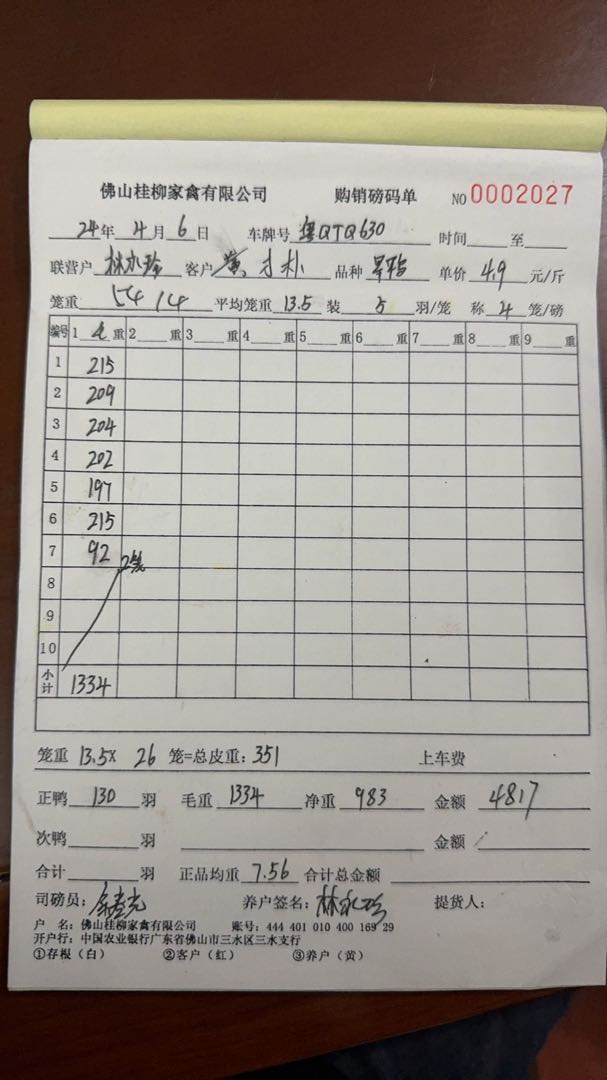 佛山桂柳家禽有限公司 购销磅码单 NO 0002027
24年4月6日 车牌号 粤QTQ630 时间 至
联营户 林水珍 客户 黄 才朴 品种 单价 4.9 元/斤
笼重 54 14 平均笼重 13.5 装 5 羽/笼 称 4 笼/磅
编号 1 重 2 重 3 重 4 重 5 重 6 重 7 重 8 重 9 重
1 215
2 209
3 204
4 202
5 197
6 215
7 92 2笼
8
9
10
小计 1334
笼重 13.5× 26 笼=总皮重：351 上车费
正鸭 130 羽 毛重 1334 净重 983 金额 4817
次鸭 羽 金额
合计 羽 正品均重 7.56 合计总金额
司磅员： 养户签名： 提货人：
户 名：佛山桂柳家禽有限公司 账号：444 401 010 400 169 29
开户行：中国农业银行广东省佛山市三水区三水支行
①存根（白） ②客户（红） ③养户（黄）